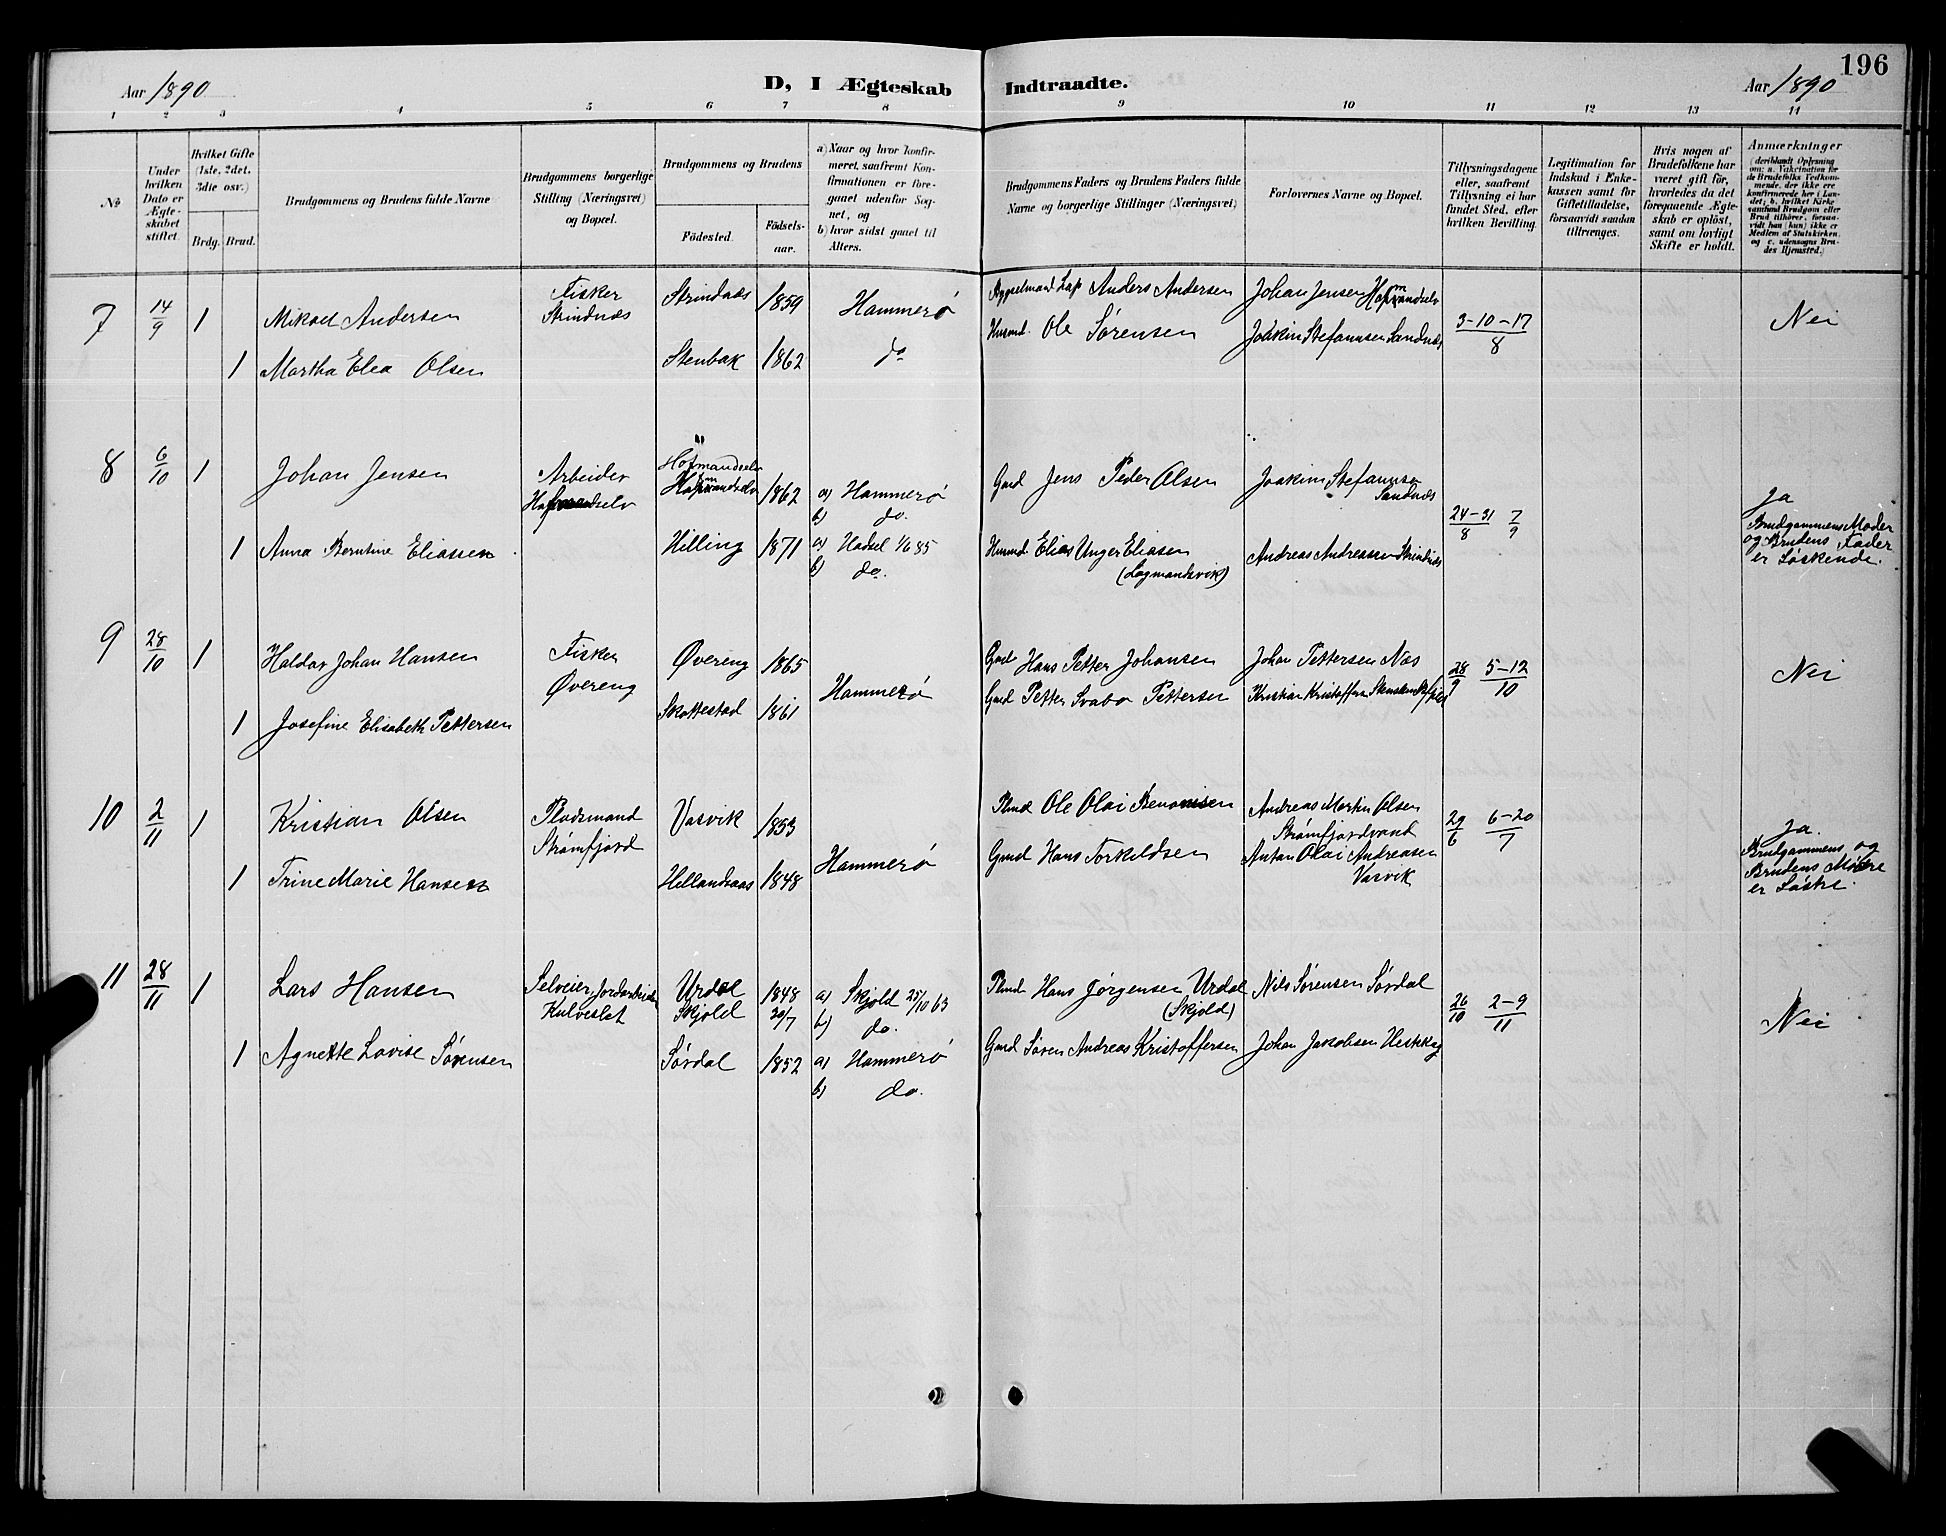 196
Aar 1890
D, I Ægteskab Indtraadte.
Aar 1890
1 2 3 4 5 6 7 8 9 10 11 12 13 14
No
Under hvilken Dato er Ægteskabet stiftet.
Hvilket Gifte (1ste, 2det, 3die osv.)
Brdg. Brud.
Brudgommens og Brudens fulde Navne
Brudgommens borgerlige Stilling (Næringsvei) og Bopæl.
Brudgommens og Brudens
Födested.
Födsels-aar.
a) Naar og hvor konfirmeret, saafremt Konfirmationen er foregaaet udenfor Sognet, og
b) hvor sidst gaaet til Alters.
Brudgommens Faders og Brudens Faders fulde Navne og borgerlige Stillinger (Næringsvei)
Forlovernes Navne og Bopæl.
Tillysningsdagene eller, saafremt Tillysning ei har fundet Sted, efter hvilken Bevilling.
Legitimation for Indskud i Enkekassen samt for Giftetilladelse, forsaavidt saadan tiltrænges.
Hvis nogen af Brudefolkene har været gift för, hvorledes da det foregaaende Ægteskab er oplöst, samt om lovligt Skifte er holdt.
Anmærkninger
(deriblandt Oplysning om: a. Vaktination for de Brudefolks Vedkommende, der ikke ere konfirmerede her i Landet; b. hvilket Kirkesamfund Brudgom eller Brud tilhörer, forsaavidt han (hun) ikke er Medlem af Statskirken, og c. udensogns Brudes Hjemsted.)
7 14/9 1 Mikael Andersen Fisker Strindnæs Strindnæs 1859 Hammerø Lap Anders Andersen Johan Jensen 3-10-17/8 Nei
1 Martha Elea Olsen Stenbak 1862 do Husmd. Ole Sørensen Joakim Stefannsen Sandnæs
8 6/10 1 Johan Jensen Arbeider Hofmandselv 1862 a) Hammerø b) do. Gmd Jens Peder Olsen Joakim Stefannsen Sandnæs 24-31/8 7/9 Ja
Brudgommens Moder og Brudens Fader er Søskende.
1 Anna Berntine Eliassen Helling 1871 a) Hadsel 1/6 85 b) do. Husmd. Elias Unger Eliasen (Lagmandsvik) Andreas Andreassen Strindnæs
9 28/10 1 Haldor Johan Hansen Fisker Øvereng Øvereng 1865 Hammerø Gmd Hans Petter Johansen Johan Pettersen Næs 28/9 5-12/10 Nei
1 Josefine Elisabeth Pettersen Skottestad 1861 Gmd Petter Svabo Pettersen Kristian Kristoffersen
10 2/11 1 Kristian Olsen Pladsmand Strømfjord Vasvik 1853 Hammerø Plmd Ole Olai Benonisen Andreas Martin Olsen Strømfjordvand 29/6 6-20/7 Ja.
Brudgommens og Brudens Mødre er Søstre.
1 Trine Marie Hansen Hellandsaas 1848 Gmd Hans Torkildsen Anton Olai Andreasen Vasvik
11 28/11 1 Lars Hansen Selveier, Jordarbeider Kulveslet Urdal Skjold 1848 30/7 a) Skjold 25/10 63 b) do. Plmd Hans Jørgensen Urdal (Skjold) Nils Sørensen Sørdal 26/10 2-9/11 Nei
1 Agnette Lovise Sørensen Sørdal 1852 a) Hammerø b) do. Gmd Søren Andreas Kristoffersen Johan Jakobsen